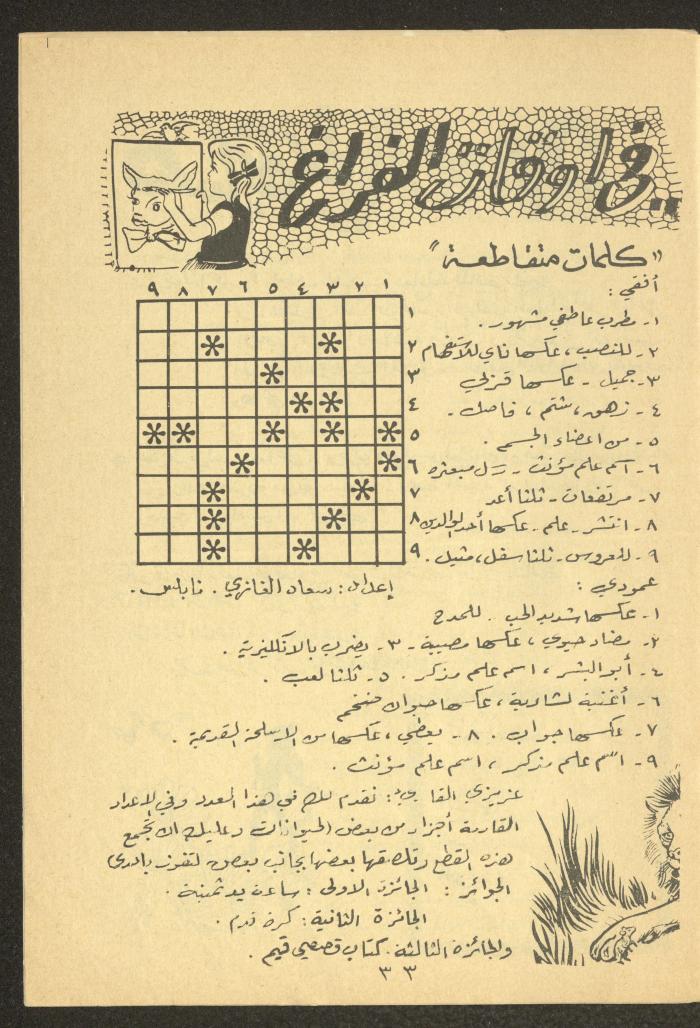 في اوقات الفراغ
"كلمات متقاطعة"
أفقي :
٩ ٨ ٧ ٦ ٥ ٤ ٣ ٢ ١
١
٢
٣
٤
٥
٦
٧
٨
٩
١- مطرب عاطفي مشهور .
٢- للنصب ، عكسها ناي للاستفهام
٣- جميل - عكسها قزلي
٤- زهق ، شتم ، فاصل .
٥- من اعضاء الجسم .
٦- اسم علم مؤنث - زل مبعثره
٧- مرتفعات - ثلثا أعد
٨- انتشر - علم - عكسها أحد لوالدي
٩- للعروس - ثلثا سفل ، مثيل .
إعداد : سعاد الغازي . نابلس .
عمودي :
١- عكسها شديد الحب . للمدح
٢- مضاد حيوي ، عكسها مصيبة - ٣- يضرب بالانكليزية .
٤- أبو البشر ، اسم علم مذكر . ٥- ثلثا لعب .
٦- أغنية لشادية ، عكسها حيوان ضخم
٧- عكسها جواب . ٨- يعطي ، عكسها من الاسلحة القديمة .
٩- اسم علم مذكر ، اسم علم مؤنث .
عزيزي القارئ : نقدم لك في هذا العدد وفي الاعداد
القادمة أجزاء من بعض الحيوانات وعليك ان تجمع
هذه القطع وتلصقها بعضها بجانب بعض لتفوز باحدى
الجوائز : الجائزة الاولى : ساعة يد ثمينة .
الجائزة الثانية : كرة قدم .
والجائزة الثالثة . كتاب قصصي قيم .
٣٣